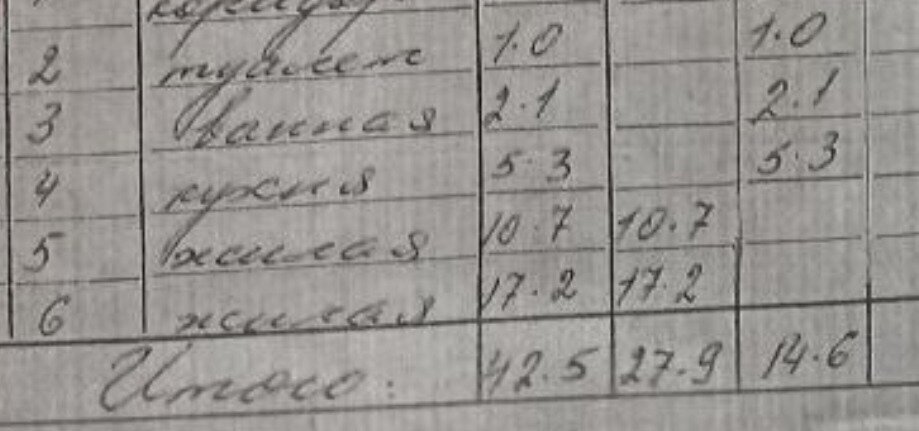 коридор
2 туалет 1.0 1.0
3 ванная 2.1 2.1
4 кухня 5.3 5.3
5 жилая 10.7 10.7
6 жилая 17.2 17.2
Итого: 42.5 27.9 14.6